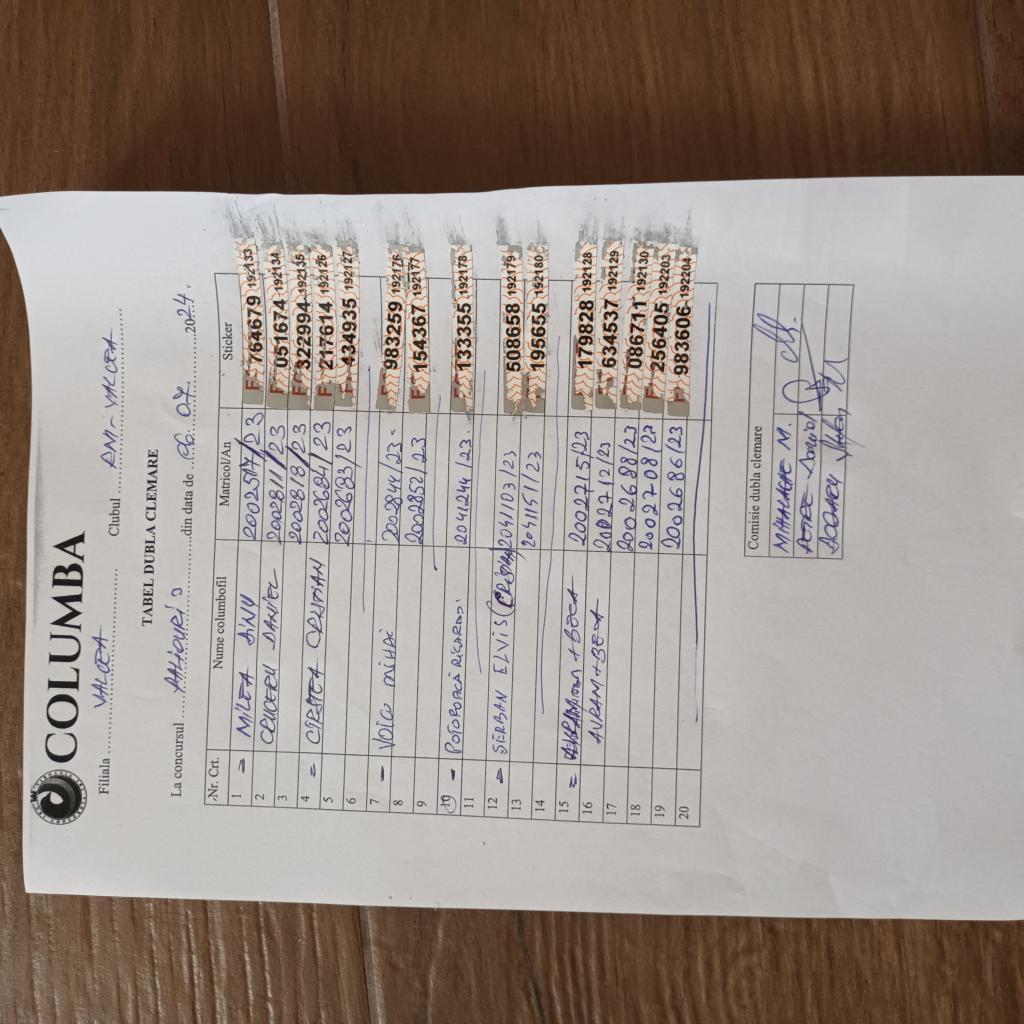 COLUMBA
Filiala VALCEA Clubul RM-VALCEA
TABEL DUBLA CLEMARE
La concursul din data de 06.07. 2024.
Nr. Crt. Nume columbofil Matricol/An Sticker
1 = MILEA DINU 2002517/23 F 764679 192133
2 DANIEL 2002811/23 F 051674 192134
3 2002818/23 322994 192135
4 = CRISTIAN 2002684/23 F 217614 192126
5 2002683/23 434935 192127
6
7 - VOICU MIHAI 202844/23 983259 192176
8 2002852/23 F 154367 192177
9
10 - RICARDO 2041244/23 133355 192178
11
12 = SERBAN ELVIS (CRISTIAN) 2041103/23 508658 192179
13 2041151/23 195655 192180
14
15 = +BECA 2002715/23 179828 192128
16 AVRAM+BECA 2002712/23 634537 192129
17 2002688/23 086711 192130
18 2002708/23 256405 192203
19 2002686/23 983606 192204
20
Comisie dubla clemare
MIHALACHE M.
PETRE DANIEL